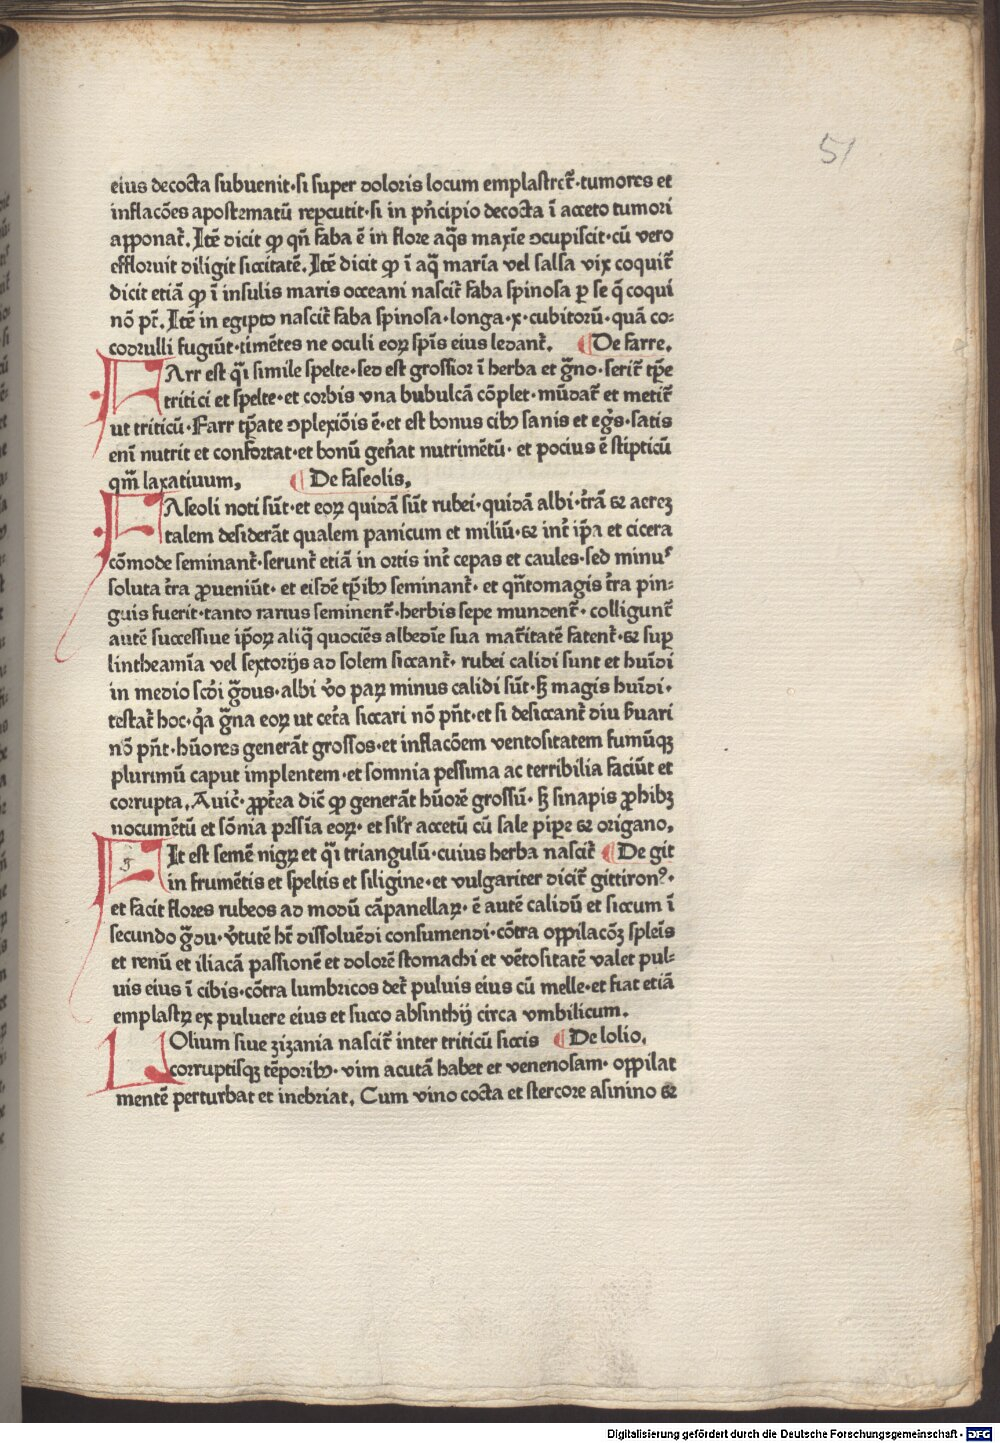 51
eius decocta subuenit·si super doloris locum emplastret᷑·tumores et
inflacōes apostematū repcutit·si in pn̄cipio decocta ī aceto tumori
apponat᷑. Itē dicit ꝙ qn̄ faba ē in flore aq̄s maxīe ↄcupiscit·cū vero
effloruit diligit siccitatē. Itē dicit ꝙ ī aq̄ marīa vel salsa vix coquit᷑
dicit etiā ꝙ ī insulis maris occeani nascit᷑ faba spinosa ꝑ se q̄ coqui
nō pt̄. Itē in egipto nascit᷑ faba spinosa·longa·x·cubitorū·quā co⸗
codrulli fugiūt·timētes ne oculi eoꝝ spīs eius ledant᷑. De farre.
FArr est q̄i simile spelte·sed est grossior ī herba et ḡno·serit᷑ tp̄e
tritici et spelte·et corbis vna bubulcā cōplet·mūdat᷑ et metit᷑
ut triticū·Farr tp̄ate ↄplexiōis ē·et est bonus cibꝰ sanis et egr̄s·satis
enī nutrit et confortat·et bonū gen̄at nutrimētū·et pocius ē stipticū
qm̄ laxatiuum. De faseolis.
FAseoli noti sūt·et eoꝝ quidā sūt rubei·quidā albi·tr̄ā et aereꝫ
talem desiderāt qualem panicum et miliū·et int᷑ ip̄a et cicera
cōmode seminant᷑·serunt᷑ etiā in ortis int᷑ cepas et caules·sed minus
soluta tr̄a ꝓueniūt·et eisdē tp̄ibꝰ seminant᷑·et qn̄tomagis tr̄a pin⸗
guis fuerit·tanto rarius seminent᷑·herbis sepe mundent᷑·colligunt᷑
autē successiue ip̄oꝝ aliq̄ quociēs albedīe sua mat᷑itatē fatent᷑·et suꝑ
lintheamīa vel sextorijs ad solem siccant᷑·rubei calidi sunt et huīdi
in medio scd̄i ḡdus·albi v̄o paꝝ minus calidi sūt·sꝫ magis huīdi·
testat᷑ hoc·q̄a ḡna eoꝝ ut cet᷑a siccari nō pn̄t·et si desiccant᷑ diu s̄uari
nō pn̄t·hūores generāt grossos·et inflacōem ventositatem fumūqꝫ
plurimū caput implentem·et somnia pessima ac terribilia faciūt et
corrupta. Auic᷑·ꝓpt᷑ea dic̄ ꝙ generāt hūorē grossū·sꝫ sinapis ꝓhibꝫ
nocumētū et sōnia pessīa eoꝝ·et sil᷑r acetū cū sale pipe et origano.
gIt est semē nigꝝ et q̄i triangulū·cuius herba nascit᷑ De git
in frumētis et speltis et siligine·et vulgariter dicit᷑ gittironꝰ·
et facit flores rubeos ad modū cāpanellaꝝ·ē autē calidū et siccum ī
secundo ḡdu·v᷑tutē hꝫ dissoluēdi consumendi·cōtra oppilacōꝫ splēis
et renū et iliacā passionē et dolorē stomachi et vētositatē valet pul⸗
uis eius ī cibis·cōtra lumbricos det᷑ puluis eius cū melle·et fiat etiā
emplastꝝ ex puluere eius et succo absinthij circa vmbilicum.
LOlium siue zizania nascit᷑ inter triticū siccis De lolio.
corruptisqꝫ tēporibꝰ·vim acutā habet et venenosam·oppilat
mentē perturbat et inebriat. Cum vino cocta et stercore asinino et
Digitalisierung gefördert durch die Deutsche Forschungsgemeinschaft - DFG